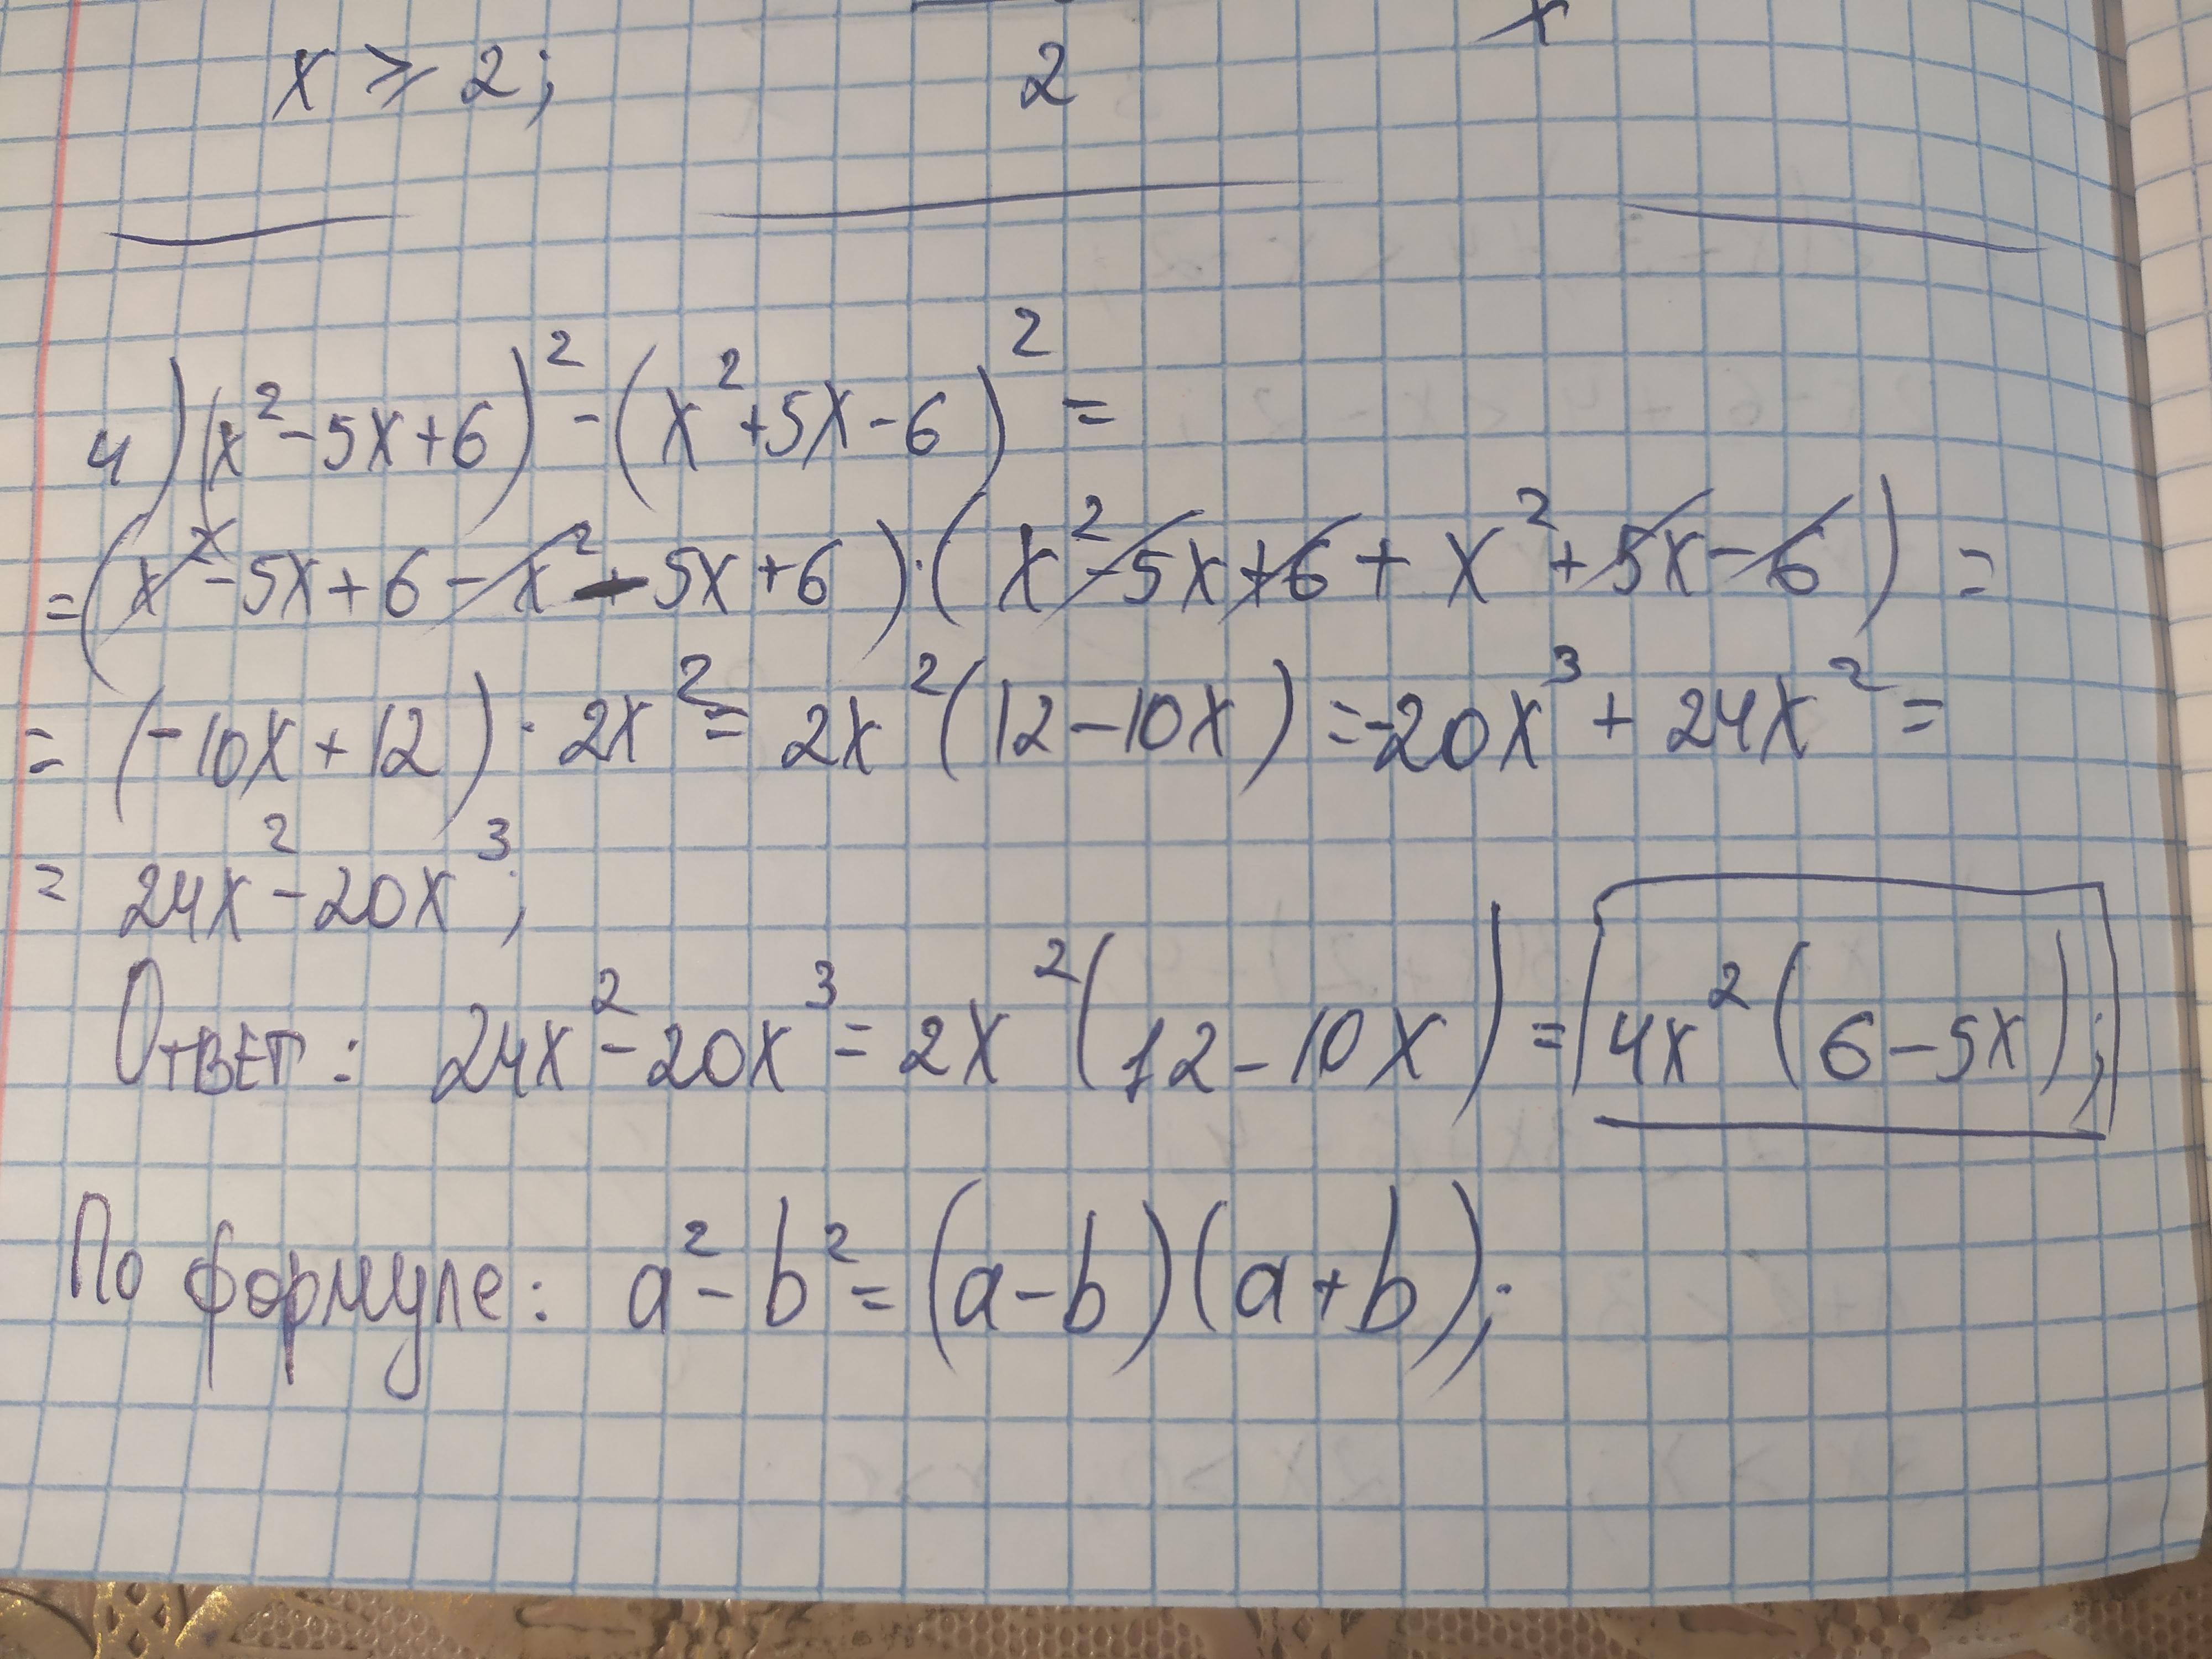 x ⩾ 2; 2 x
4) (x²-5x+6)² - (x²+5x-6)² =
= (x²-5x+6-x²-5x+6)·(x²-5x+6+x²+5x-6) =
= (-10x+12)·2x² = 2x²(12-10x) = -20x³+24x² =
= 24x²-20x³;
Ответ: 24x²-20x³ = 2x²(12-10x) = 4x²(6-5x);
По формуле: a²-b² = (a-b)(a+b);